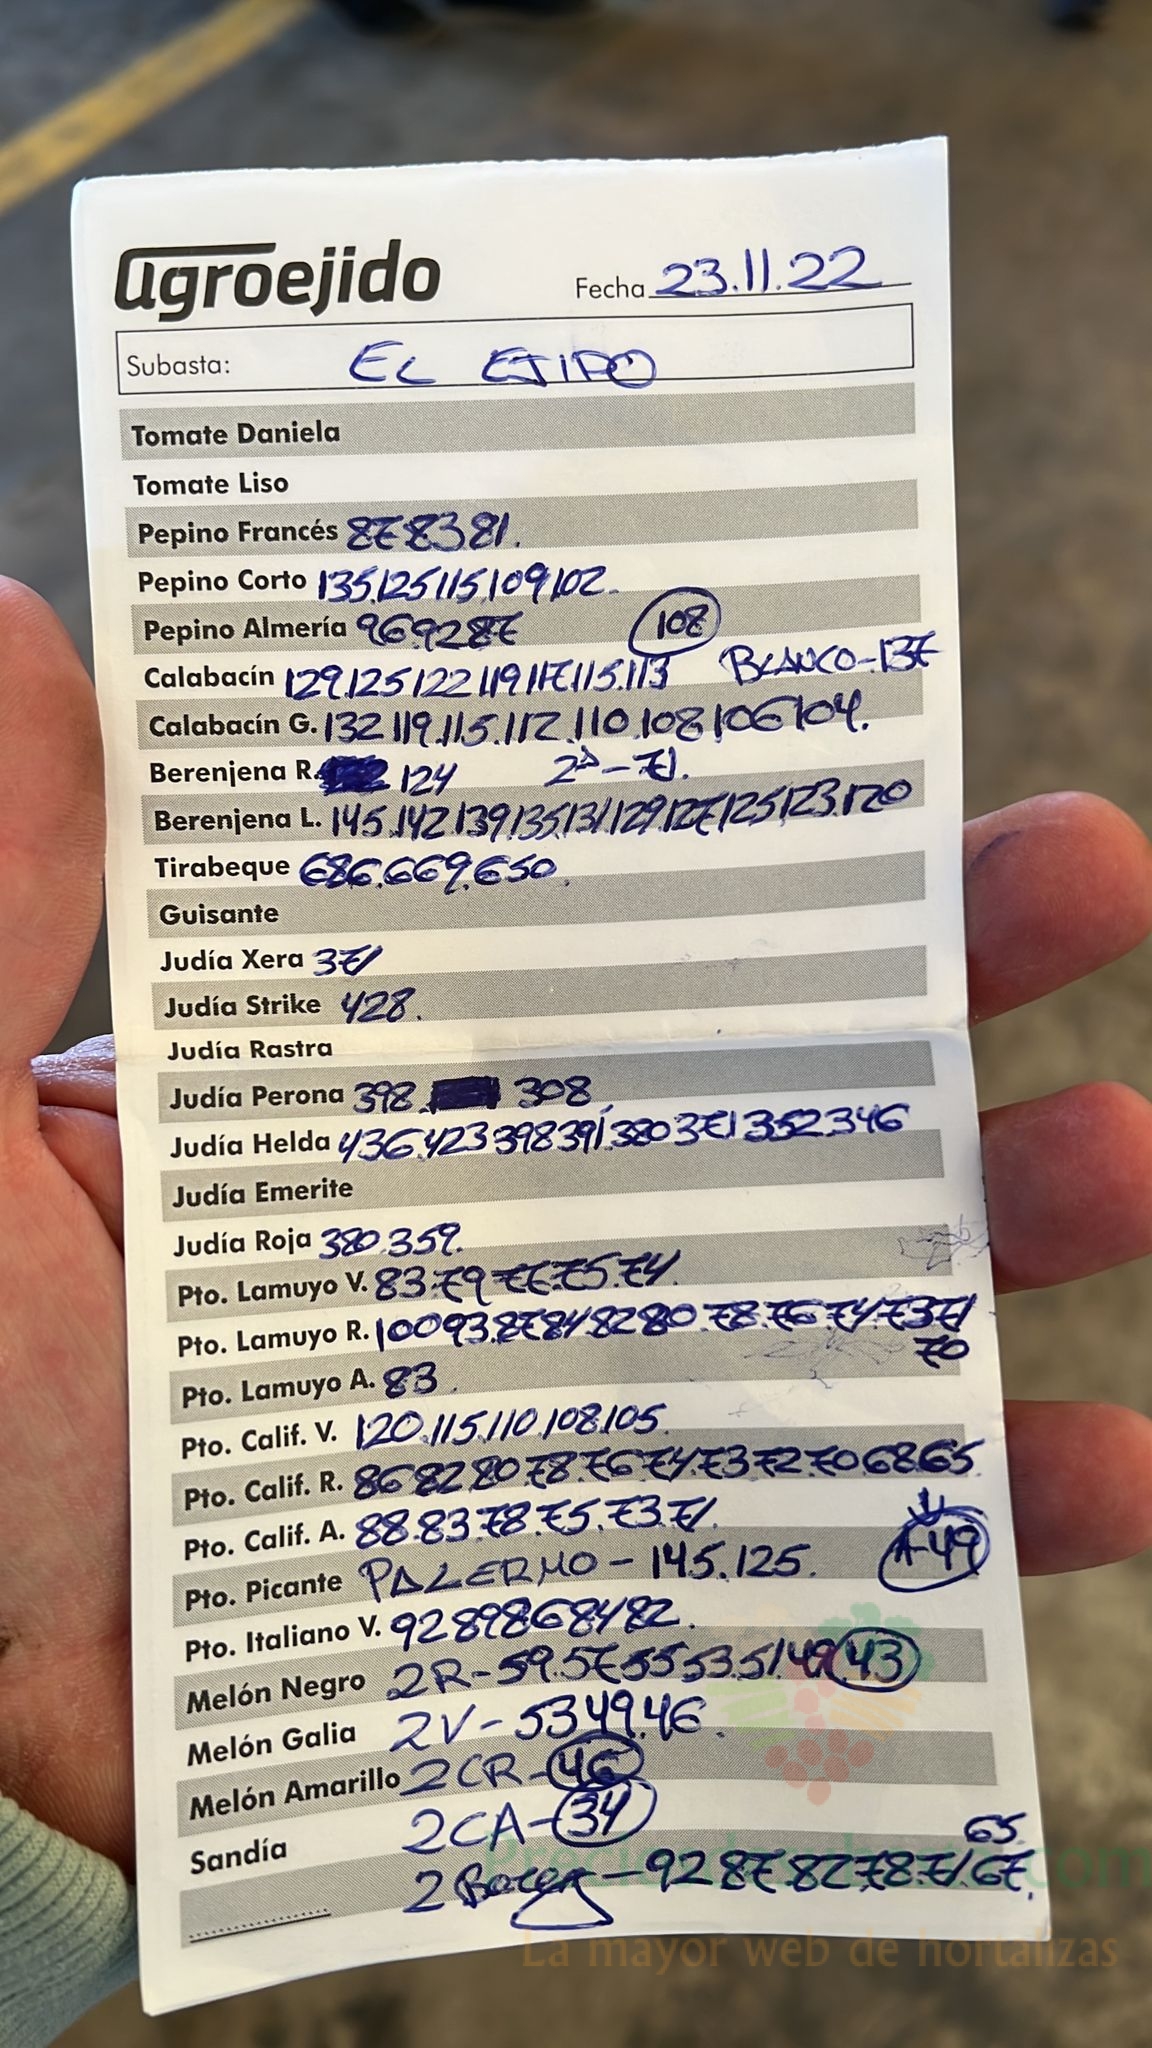 agroejido
Fecha 23.11.22
Subasta: EL EJIDO
Tomate Daniela
Tomate Liso
Pepino Francés 87.83.81.
Pepino Corto 135.125.115.109.102.
Pepino Almería 96.92.87 108
Calabacín 129.125.122.119.117.115.113 BLANCO-137
Calabacín G. 132.119.115.112.110.108.106.104.
Berenjena R. 124 2ª-71.
Berenjena L. 145.142.139.135.131.129.127.125.123.120
Tirabeque 686.669.650.
Guisante
Judía Xera 371
Judía Strike 428.
Judía Rastra
Judía Perona 398. 308
Judía Helda 436.423.398.391.380.371.352.346
Judía Emerite
Judía Roja 380.359.
Pto. Lamuyo V. 83.79.77.75.74.
Pto. Lamuyo R. 100.93.87.84.82.80.78.76.74.73.71
70
Pto. Lamuyo A. 83
Pto. Calif. V. 120.115.110.108.105.
Pto. Calif. R. 86.82.80.78.76.74.73.72.70.68.65
Pto. Calif. A. 88.83.78.75.73.71.
Pto. Picante PALERMO - 145.125. A-49
Pto. Italiano V. 92.89.86.84.82.
Melón Negro 2R-59.57.55.53.51.49.43
Melón Galia 2V-53.49.46.
Melón Amarillo 2CR-46
Sandía 2CA-34
65.
2 - 92.87.82.78.71.67.
La mayor web de hortalizas